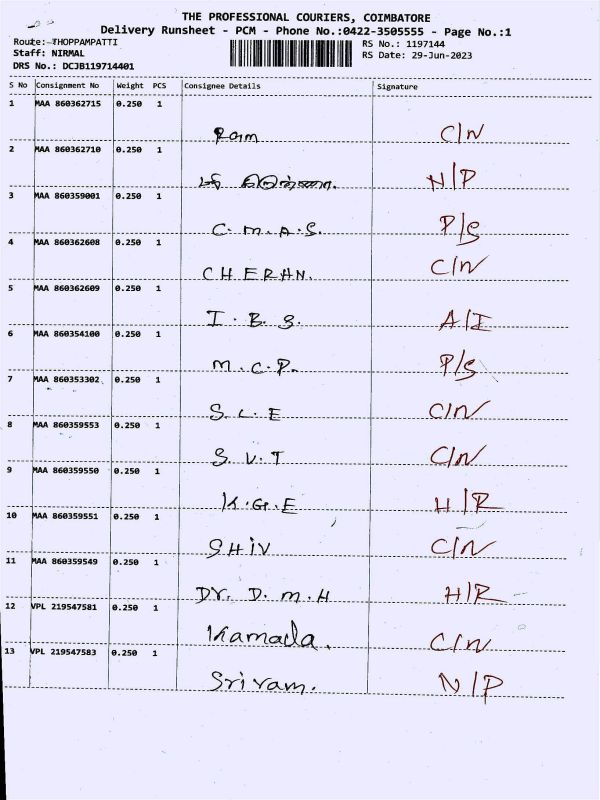 THE PROFESSIONAL COURIERS, COIMBATORE
Delivery Runsheet - PCM - Phone No.:0422-3505555 - Page No.:1
Route:-THOPPAMPATTI
RS No.: 1197144
Staff: NIRMAL
RS Date: 29-Jun-2023
DRS No.: DCJB119714401
S No Consignment No Weight PCS Consignee Details Signature
1 MAA 860362715 0.250 1
Ram C/N
2 MAA 860362710 0.250 1
N/P
3 MAA 860359001 0.250 1
C. M. A. S. P/S
4 MAA 860362608 0.250 1
CHERAN. C/N
5 MAA 860362609 0.250 1
I. B. S. A/I
6 MAA 860354100 0.250 1
M. C. P. P/S
7 MAA 860353302 0.250 1
S. L. E C/N
8 MAA 860359553 0.250 1
S. V. T C/N
9 MAA 860359550 0.250 1
K. G. E H/R
10 MAA 860359551 0.250 1
SHIV C/N
11 MAA 860359549 0.250 1
Dr. D. M. H H/R
12 VPL 219547581 0.250 1
Kamada. C/N
13 VPL 219547583 0.250 1
Sriram. N/P